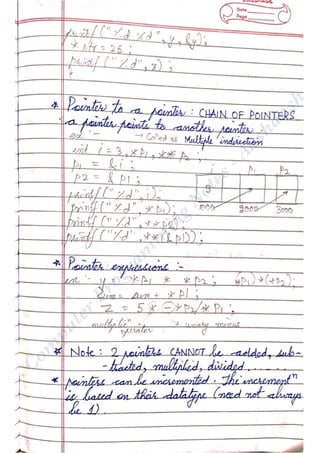 Date
Page
printf("%d %d", y, &y);
*ptr = 25;
printf("%d", y);
}
* Pointer to a pointer : CHAIN OF POINTERS
a pointer points to another pointer
ex :- → Called as Multiple indirection
int i = 3, *p1, **p2;
p1 = &i;
p2 = &p1;
i p1 p2
3
1000 2000 3000
printf("%d", i);
printf("%d", *p1);
printf("%d", **p2);
printf("%d", **(&p1));
* Pointer expressions :-
ex :- y = *p1 * *p2; (*p1)*(*p2);
sum = sum + *p1;
z = 5 * - *p2 / *p1;
operator * unary minus
* Note : 2 pointers CANNOT be added, sub-
-tracted, multiplied, divided ......
* pointers can be incremented. The increment
is based on their datatype (need not always
be 1).